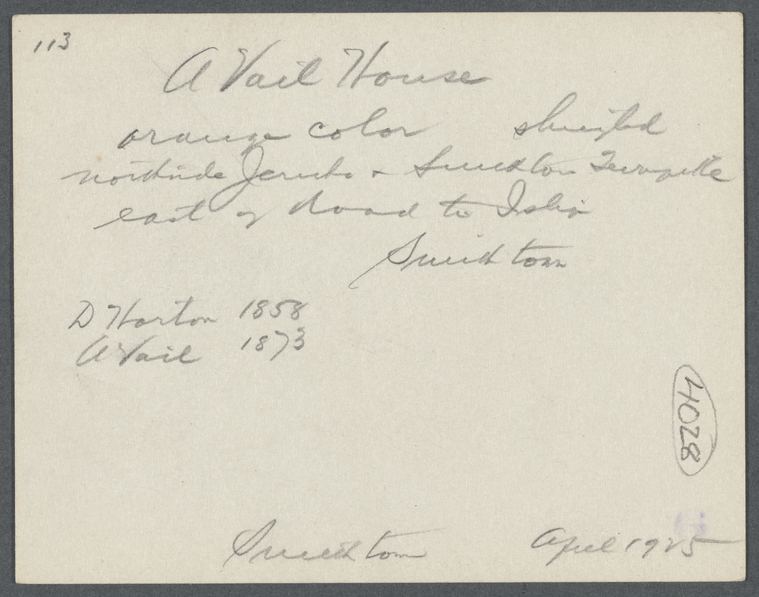 113
A Vail House
orange color shingled
northside Jericho + Smithtown Turnpike
east of Road to Islip
Smithtown
D Horton 1858
A Vail 1873
4028
Smithtown April 1925